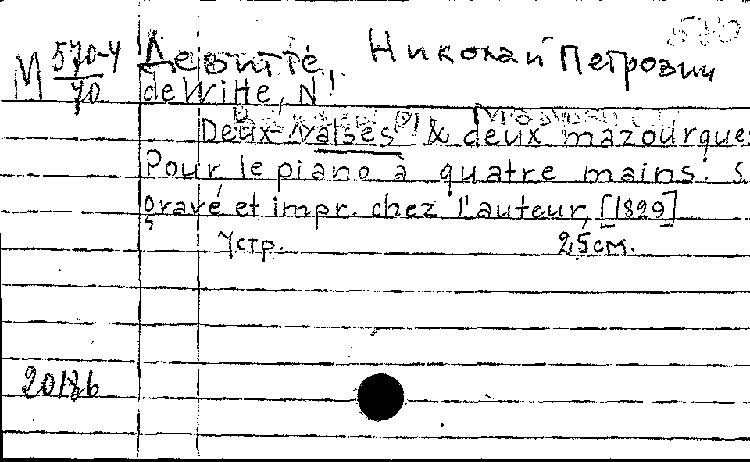 М 570-4/70 Девитте, Николай Петрович
de Witte, N.
Deux valses & deux mazourques
Pour le piano à quatre mains. S.
gravé et impr. chez l'auteur, [1829]
7 стр. 25 см.
20186